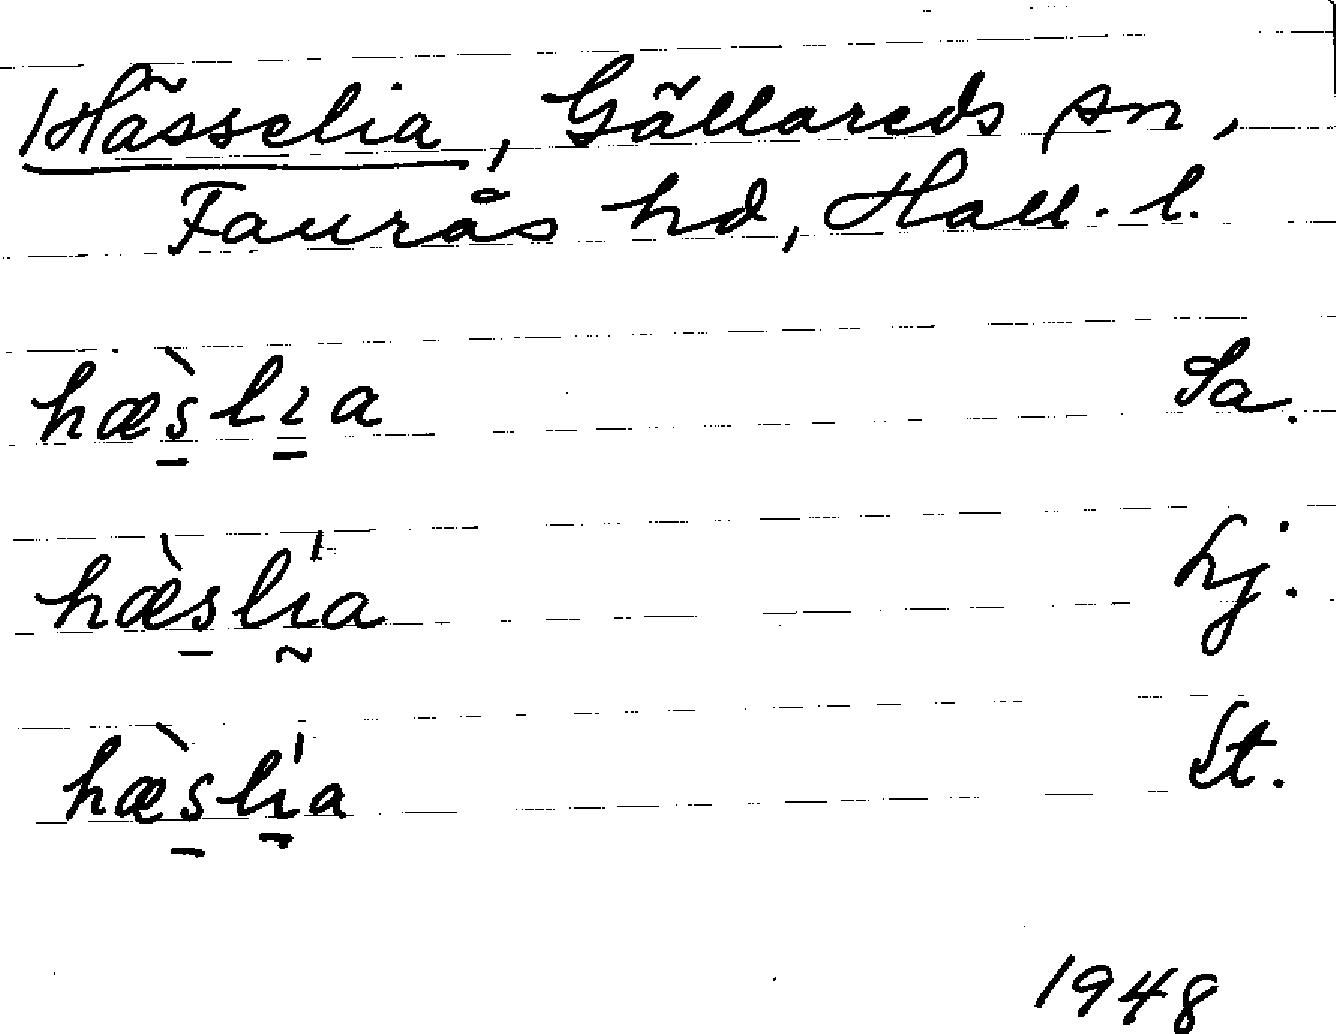 Hässelia, Gällareds sn,
Faurås hd, Hall. l.
hæ̀s̠lı̠a Sa.
hæ̀s̠lı̰́a Lj.
hæ̀s̠lı̠́a St.
1948